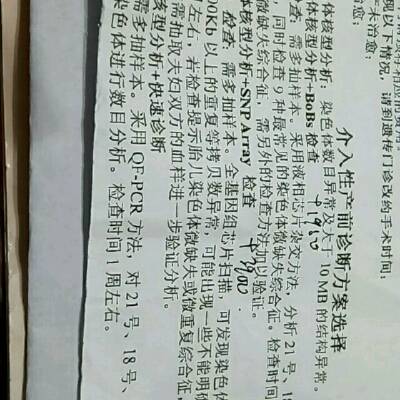 现以下情况，请到遗传门诊改约手术时间：
未治愈；
愈；
介入性产前诊断方案选择
体核型分析：染色体数目异常及大于10MB的结构异常。
体核型分析+BoBs 检查
查，需多抽样本。采用液相芯片杂交方法，分析21号、18
，同时检查9种最常见的染色体微缺失综合征。检查时间
微缺失综合征，需另外的检查方法加以验证。
体核型分析+SNP Array 检查
检查，需多抽样本。全基因组芯片扫描，可发现染色体
00Kb 以上的重复等拷贝数异常，可能出现一些不能明确
左右，若检查提示胎儿染色体微缺失或微重复综合征，
需抽取夫妇双方的血样进一步验证分析。
核型分析+快速诊断
需多抽样本。采用 QF-PCR 方法，对21号、18号、
染色体进行数目分析。检查时间1周左右。